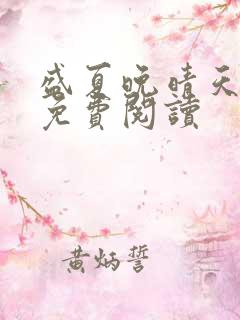 盛夏晚晴天
免費閱讀
黃炳誓